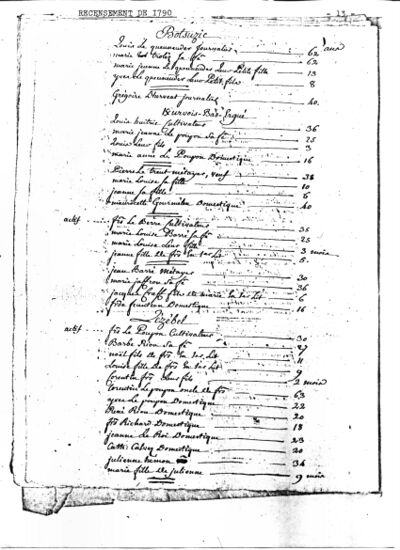 RECENSEMENT DE 1790 - 13 -
Botsuzic
Louis Le queneuder journalier 62 ans
marie sa fe 62
marie jeanne Le queneuder Leur Petite fille 13
yves Le queneuder Leur Petit fils 8
Grégoire journalier 40
Kervois-Bas-
Louis huitric Cultivateur 36
marie jeanne Le poupon Sa fe 25
Louis Leur fils 3
marie anne Le Poupon Domestique 16
Pierre Le treut métayer, veuf 38
marie Louise sa fille 10
jeanne sa fille 6
Gourmelen Domestique 40
actif frs Le Berre Cultivateur 35
marie Louise Barré Sa fe 25
marie Louise Leur fille 3 mois
jeanne fille de frs En 1er Lit 5
jean Barré Métayer 30
marie Sa fe 36
jacques fils de marie En 1er Lit 6
Domestique 16
Lézébel
actif frs Le Poupon Cultivateur 30
Barbe Riou Sa fe 27
noël fils de frs En 1er Lit 11
Louise fille de frs En 1er Lit 9
Corentin frs Leur fils 2 mois
Corentin Le poupon oncle de frs 63
yves Le poupon Domestique 22
René Riou Domestique 20
frs Richard Domestique 18
jeanne Le Roi Domestique 23
Domestique 20
julienne 34
marie fille de julienne 9 mois